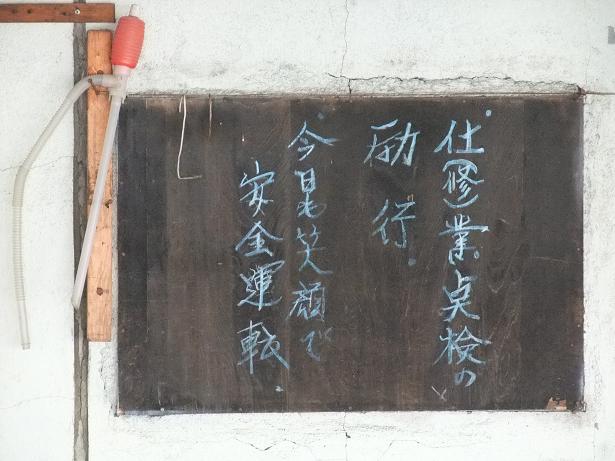 ・仕(修)業点検の
励行.
・今日も笑顔で
安全運転.